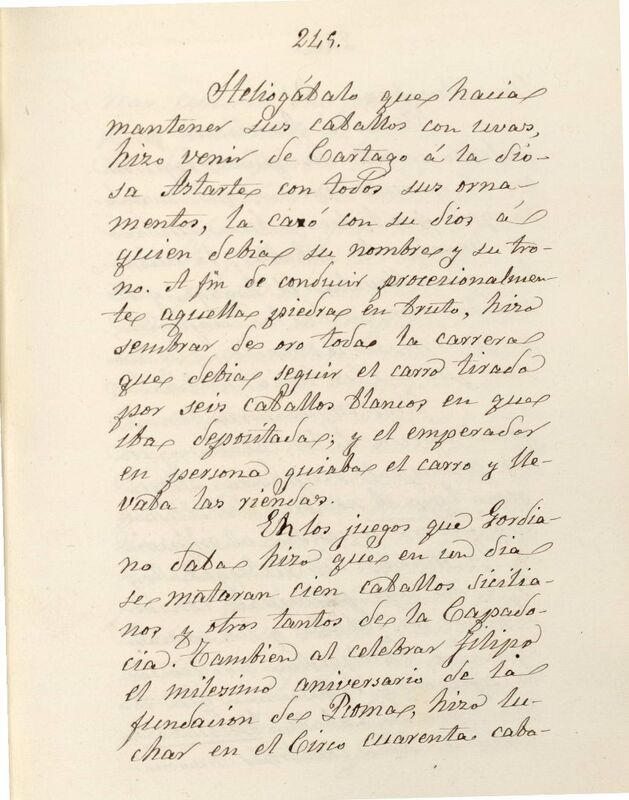 245.
Heliogábalo que hacia
mantener sus caballos con uvas,
hizo venir de Cartago á la dio-
sa Astarte con todos sus orna-
mentos, la casó con su dios á
quien debia su nombre y su tro-
no. A fin de conducir procesionalmen-
te aquella piedra en bruto, hizo
sembrar de oro toda la carrera
que debia seguir el carro tirado
por seis caballos blancos en que
iba depositada; y el emperador
en persona guiaba el carro y lle-
vaba las riendas.
En los juegos que Gordia-
no daba hizo que en un dia
se mataran cien caballos sicilia-
nos y otros tantos de la Capado-
cia. Tambien al celebrar Filipo
el milezimo aniversario de la
fundacion de Roma, hizo lu-
char en el Circo cuarenta caba-